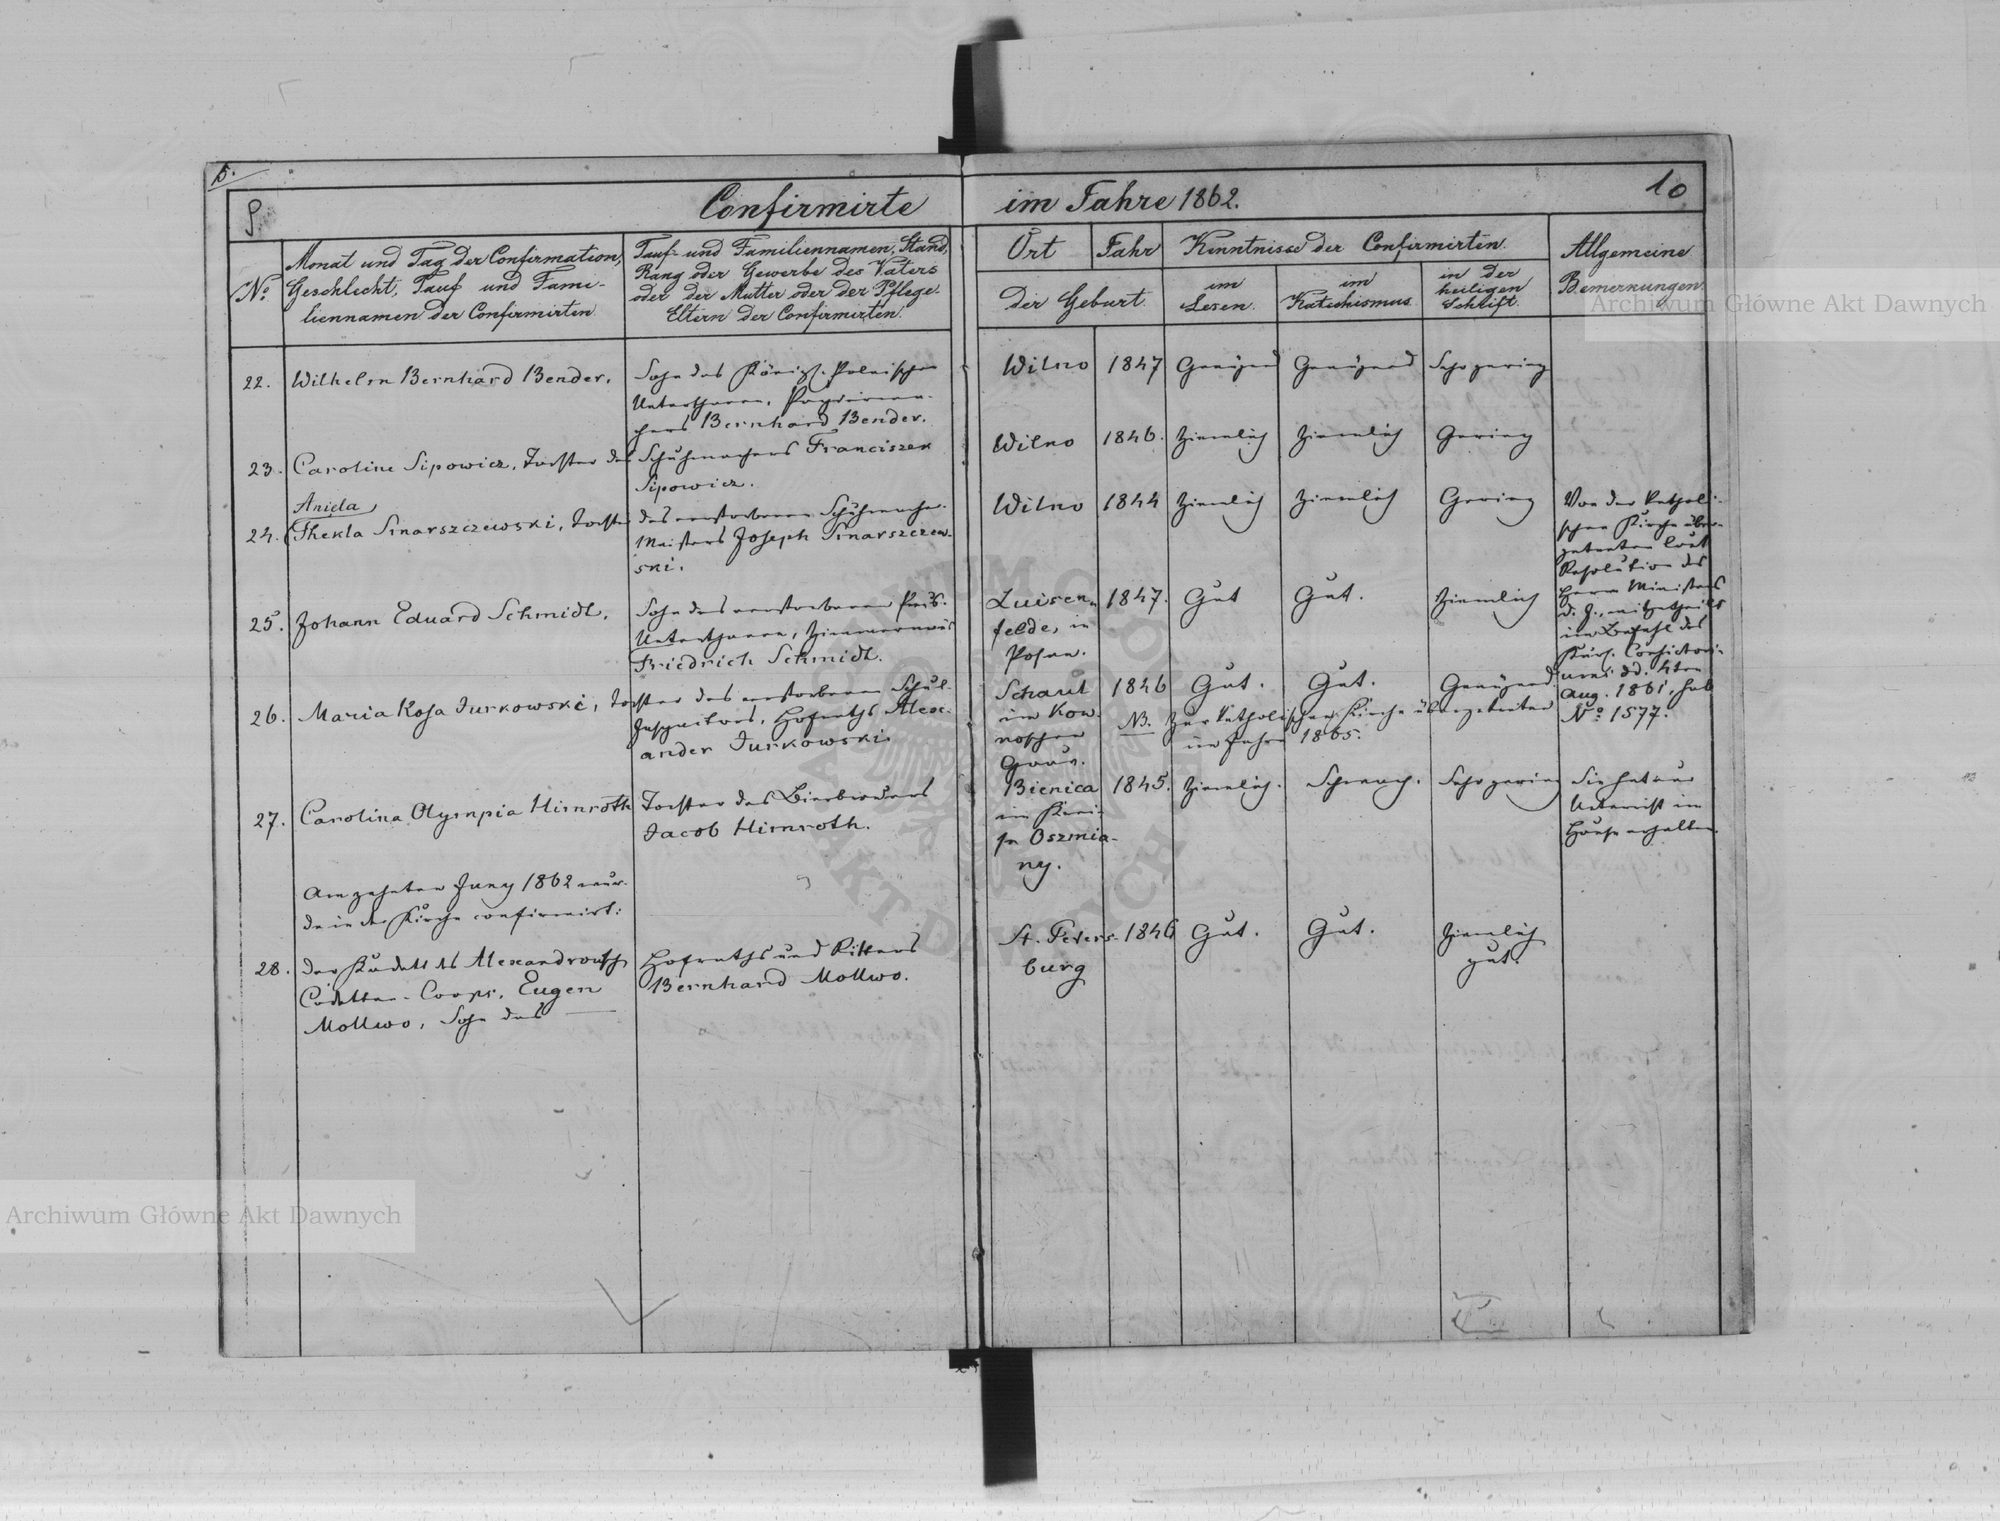 5.
9
Confirmirte
im Jahre 1862.
10
No.
Monat und Tag der Confirmation,
Geschlecht, Tauf und Fami-
liennamen der Confirmirten
Tauf- und Familiennamen, Stand,
Rang oder Gewerbe des Vaters
oder der Mutter oder der Pflege-
Eltern der Confirmirten.
Ort
Jahr
der Geburt.
Kenntnisse der Confirmirten.
im
Lesen.
im
Katechismus
in der
heiligen
Schrift.
Allgemeine
Bemerkungen
22.
Wilhelm Bernhard Bender.
Sohn des Königl. Polnischen
Unterthanen,
Bernhard Bender.
Wilno
1847
Genügend
Genügend
Sehr gering
23.
Caroline Sipowicz, Tochter des
Schuhmachers Franciszek
Sipowicz.
Wilno
1846.
Ziemlich
Ziemlich
Gering
Aniela
24.
Thekla Smarszczewski, Tochter
des verstorbenen Schuhmacher-
Meisters Joseph Smarszczew-
ski.
Wilno
1844
Ziemlich
Ziemlich
Gering
Von der katholi-
schen Kirche über-
getreten laut
Resolution des
Herrn Ministers
d. J., mitgetheilt
im Befehl des
Kurl. Consistori-
ums dd. 4ten
Aug. 1861, sub
No 1577.
25.
Johann Eduard Schmidt.
Sohn des verstorbenen Preus.
Unterthanen, Zimmermanns
Friedrich Schmidt.
Luisen-
felde, in
Posen.
1847.
Gut
Gut.
Ziemlich
26.
Maria Rosa Jurkowski, Tochter des verstorbenen Schul-
Inspectors, Hofraths Alex-
ander Jurkowski.
Schaul
im Kow-
noschen
Gouv.
1846
Gut.
Gut.
Genügend
NB. Zur katholischen Kirche übergetreten
im Jahre 1865.
27.
Carolina Olympia Himroth
Tochter des Bierbrauers
Jacob Himroth.
Bienica
im Krei-
se Oszmia-
ny.
1845.
Ziemlich.
Schwach.
Sehr gering
Sie hat nur
Unterricht im
Hause erhalten.
Am zehnten Juny 1862 wur-
de in der Kirche confirmirt:
28.
der Kadett des Alexandrowsch
Cadetten-Corps, Eugen
Mollwo, Sohn des
Hofraths und Ritters
Bernhard Mollwo.
St. Peters-
burg
1846
Gut.
Gut.
Ziemlich
gut.
Archiwum Główne Akt Dawnych
Archiwum Główne Akt Dawnych